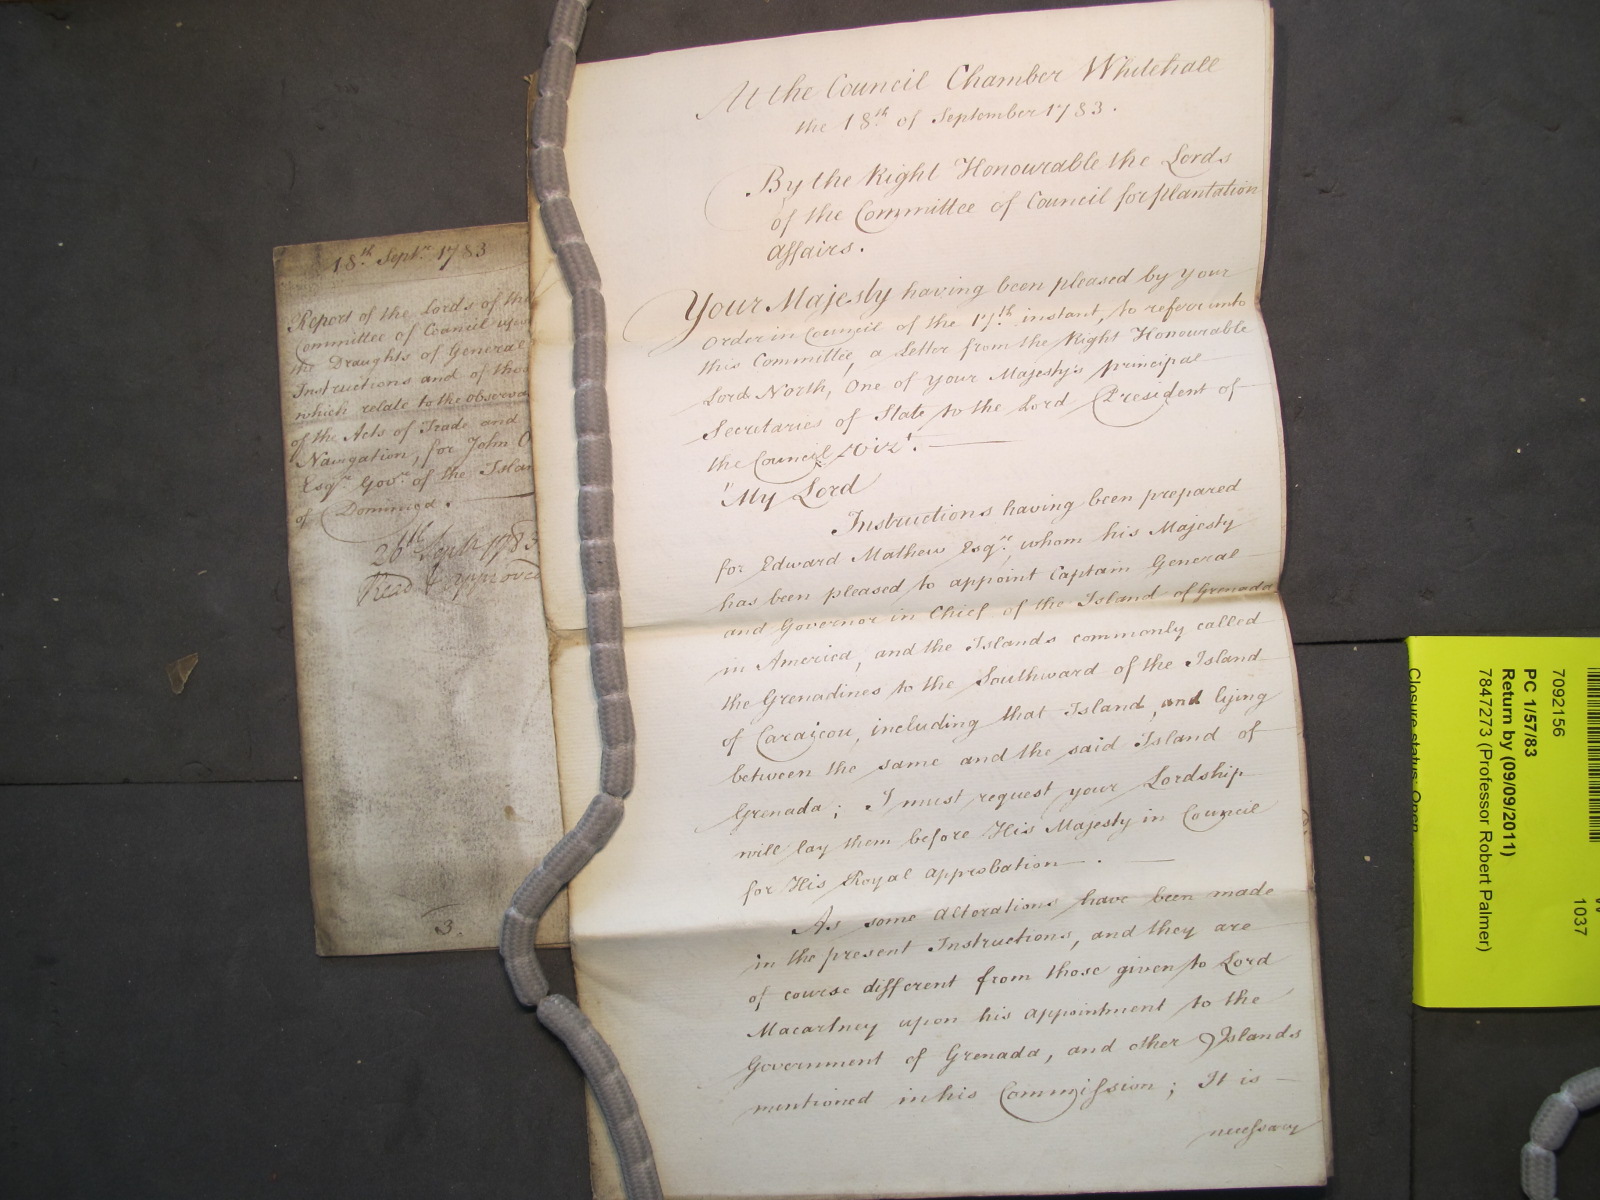 At the Council Chamber Whitehall
the 18th of September 1783.
By the Right Honourable the Lords
of the Committee of Council for plantation
affairs.
Your Majesty having been pleased by your
Order in Council of the 17th instant, to refer unto
this Committee, a Letter from the Right Honourable
Lord North, One of your Majesty's principal
Secretaries of State to the Lord President of
the Council Vizt.
"My Lord
Instructions having been prepared
for Edward Mathew Esqr. whom his Majesty
has been pleased to appoint Captain General
and Governor in Chief of the Island of Grenada
in America, and the Islands commonly called
the Grenadines to the Southward of the Island
of Caraicou, including that Island, and lying
between the same and the said Island of
Grenada; I must request your Lordship
will lay them before His Majesty in Council
for His Royal approbation.
As some alterations have been made
in the present Instructions, and they are
of course different from those given to Lord
Macartney upon his appointment to the
Government of Grenada, and other Islands
mentioned in his Commission; It is
necessary
18th Septr. 1783
Report of the Lords of the
Committee of Council upon
the Draughts of General
Instructions and of those
which relate to the observa
of the Acts of Trade and
Navigation, for John O
Esqr. Govr. of the Islan
of Dominica.
26th Septr 1783
Read & approved
3.
7092156
PC 1/57/83
Return by (09/09/2011)
7847273 (Professor Robert Palmer)
Closure status: Open
1037